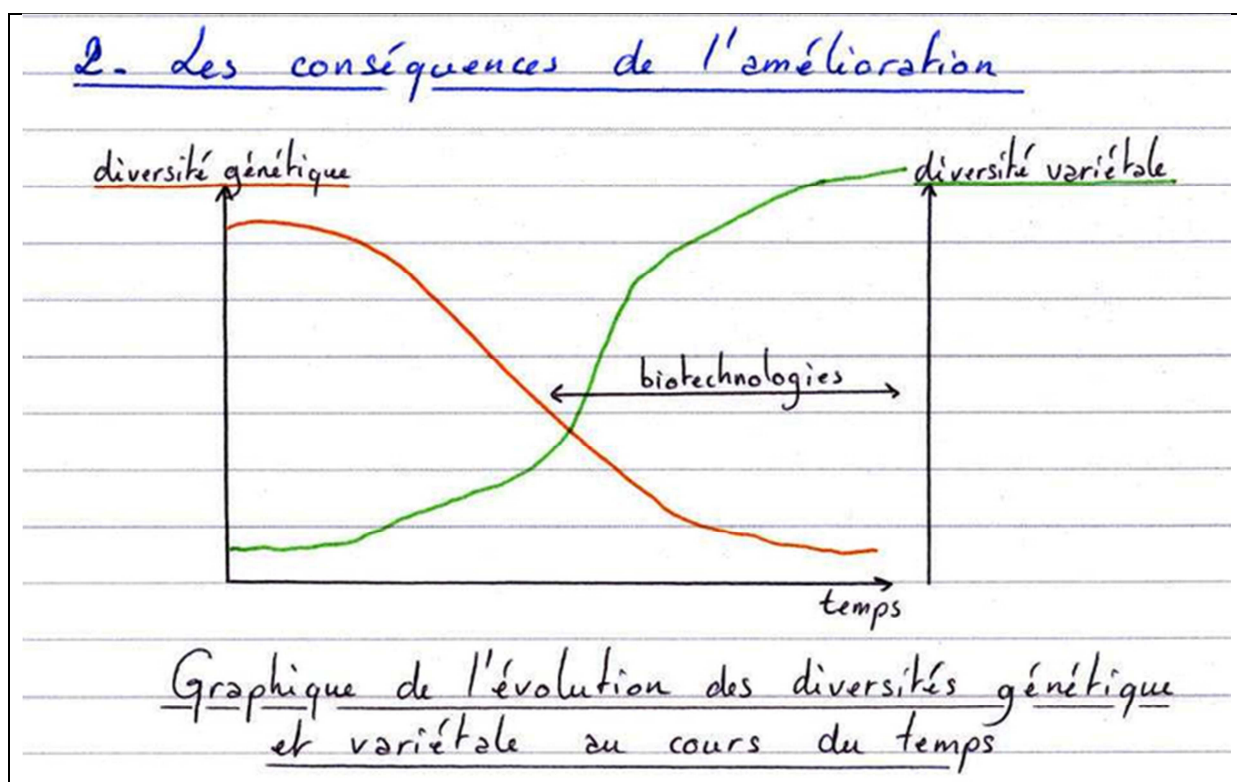 2. Les conséquences de l'amélioration
diversité génétique
diversité variétale
biotechnologies
temps
Graphique de l'évolution des diversités génétique
et variétale au cours du temps